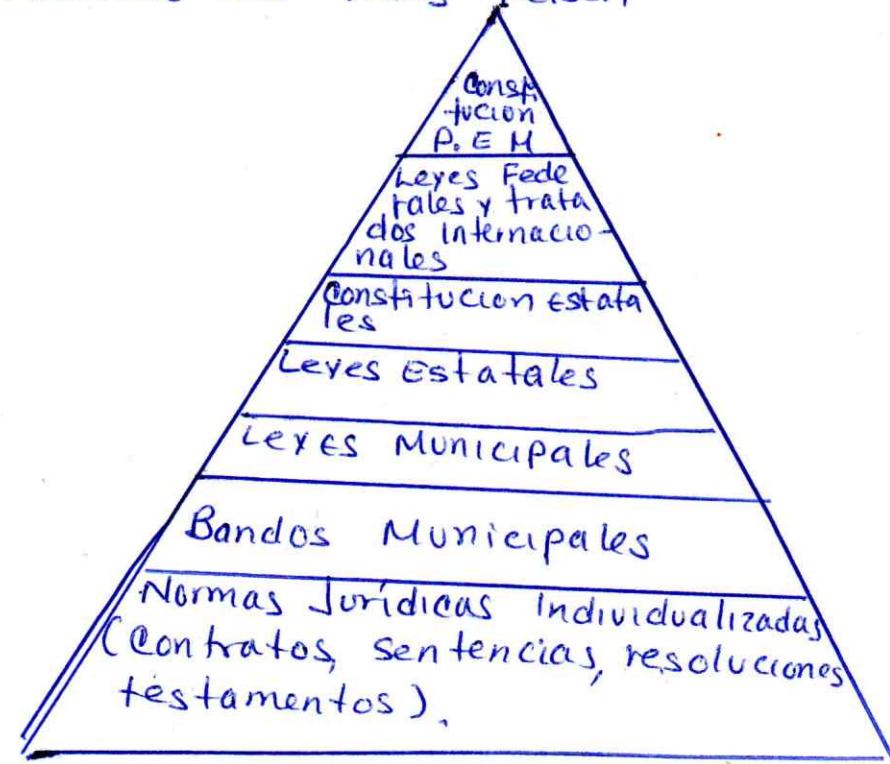 Consti
-tucion
P. E M
Leyes Fede
rales y trata
dos internacio-
nales
Constitucion Estata
les
Leyes Estatales
Leyes Municipales
Bandos Municipales
Normas Jurídicas Individualizadas
(Contratos, sentencias, resoluciones
testamentos).